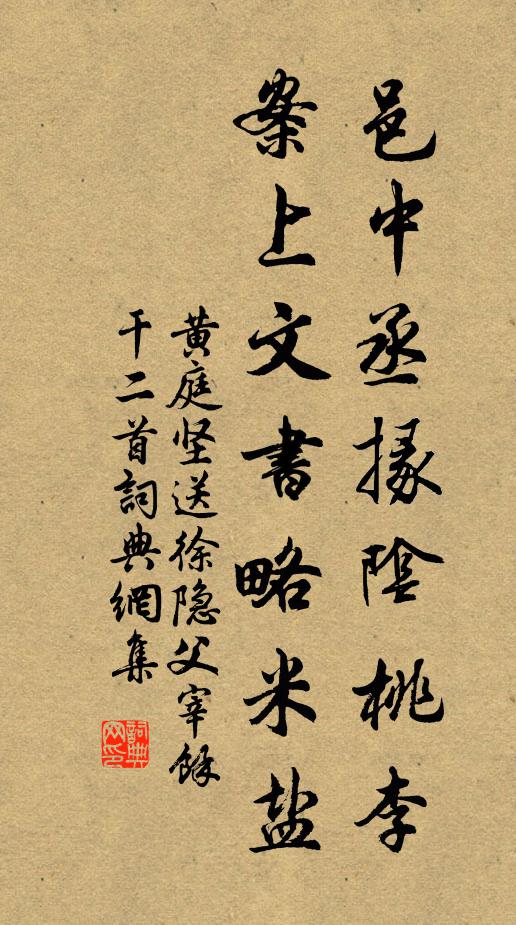 邑中丞掾陰桃李
案上文書略米盐
黄庭坚送徐隐父宰餘
干二首詞典網集
詞典网印